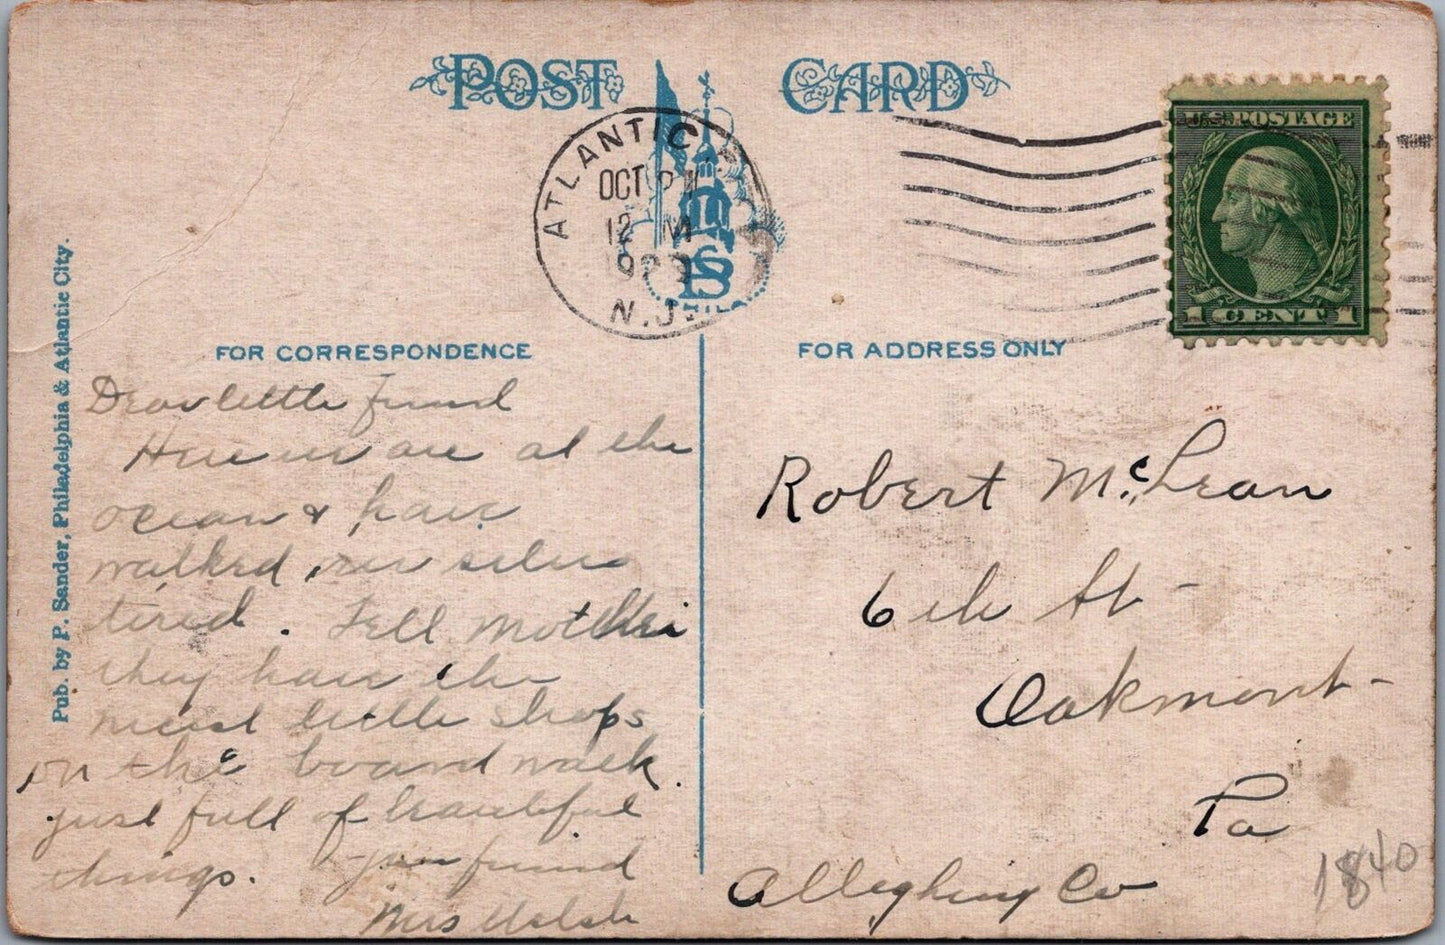 POST CARD
ATLANTIC
OCT
12 M
N.J.
U.S. POSTAGE
1 CENT 1
FOR CORRESPONDENCE
FOR ADDRESS ONLY
Pub. by P. Sander, Philadelphia & Atlantic City.
Dear little friend
Here we are at the
ocean & have
walked our selves
tired. Tell Mother
they have the
nicest little shops
on the board walk.
just full of beautiful
things. your friend
Mrs Walsh
Robert McLean
6th St-
Oakmont-
Pa
Allegheny Co
1840